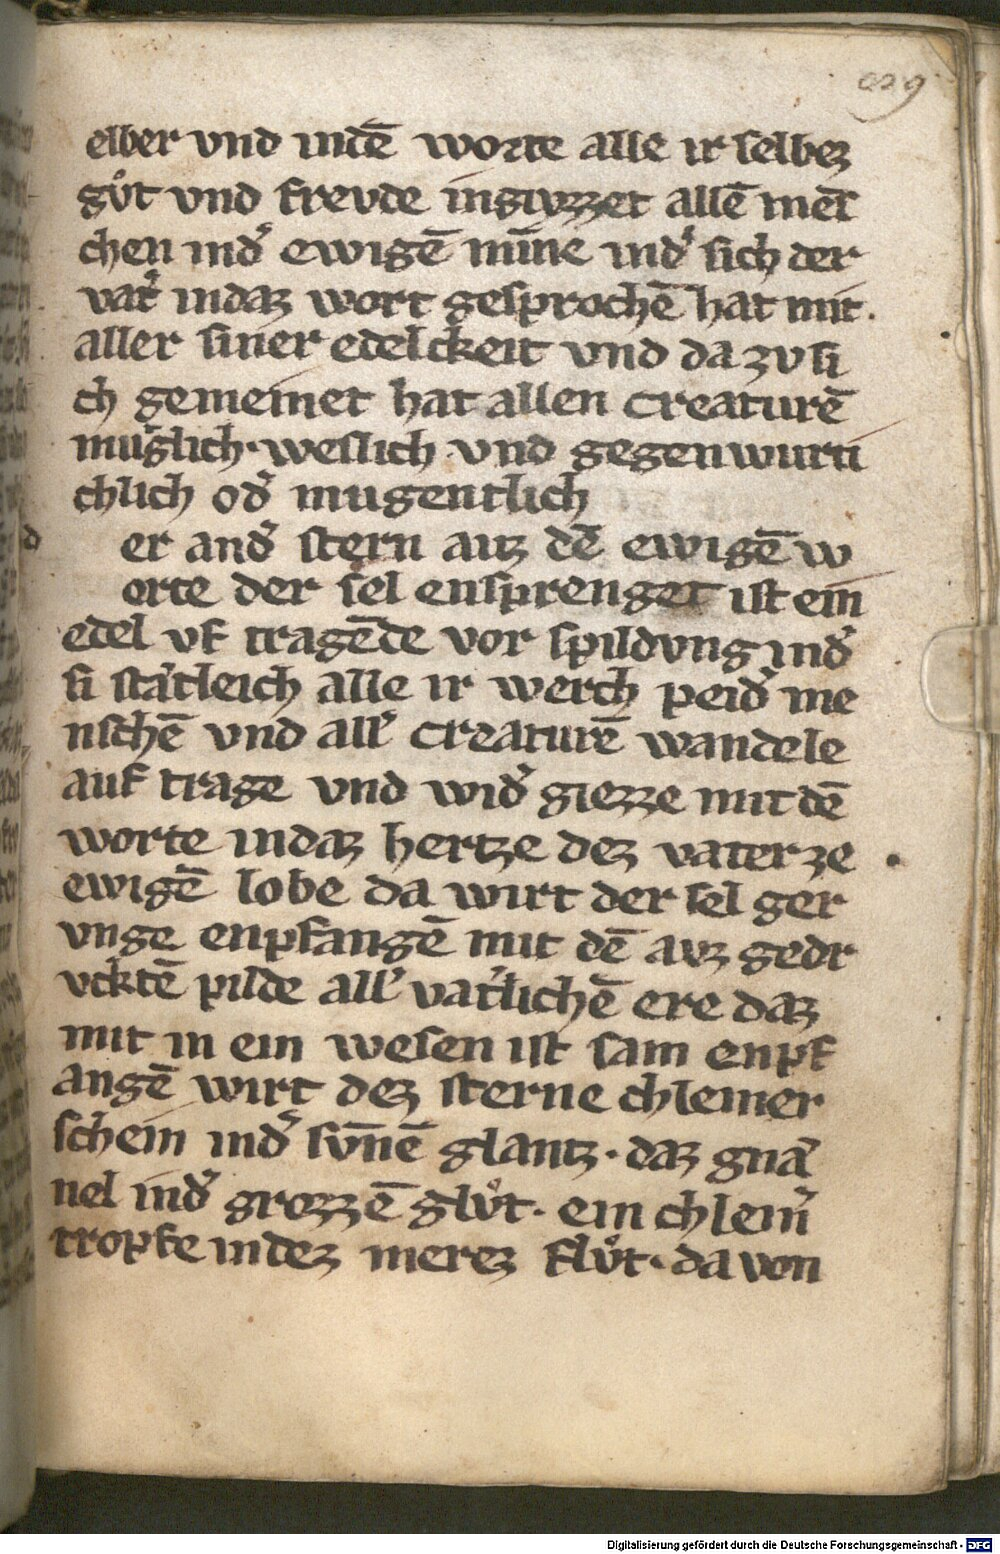 029
elber vnd indē worte alle ir selbez
gůt vnd frevde ingiyzzet allē mēs
chen indˀ ewigē mīne indˀ sich der
vatˀ indaz wort gesprochē hat mit.
aller siner edelckeit vnd da zv si
ch gemeinet hat allen creaturē
muglich· weslich · vnd gegenwurti
chlich odˀ mugentlich
d er andˀ stern auz dē ewigē w
orte der sel ensprenget ist ein
edel vf tragēde vor spildvng indˀ
si stȧtleich alle ir werch peidˀ me
nschē vnd allˀ creaturē wandele
auf trage vnd widˀ giezze mit dē
worte indaz hertze dez vater ze
ewigē lobe da wirt der sel ger
vnge enpfangē mit dē avz gedr
vcktē pilde allˀ vatˀlichē ere daz
mit in ein wesen ist sam enpf
angē wirt dez sterne chleiner
schein indˀ svnnē glantz · daz gna
nel indˀ grozzē glůt · ein chleinˀ
tropfe indez merez flůt · da von
Digitalisierung gefördert durch die Deutsche Forschungsgemeinschaft - DFG